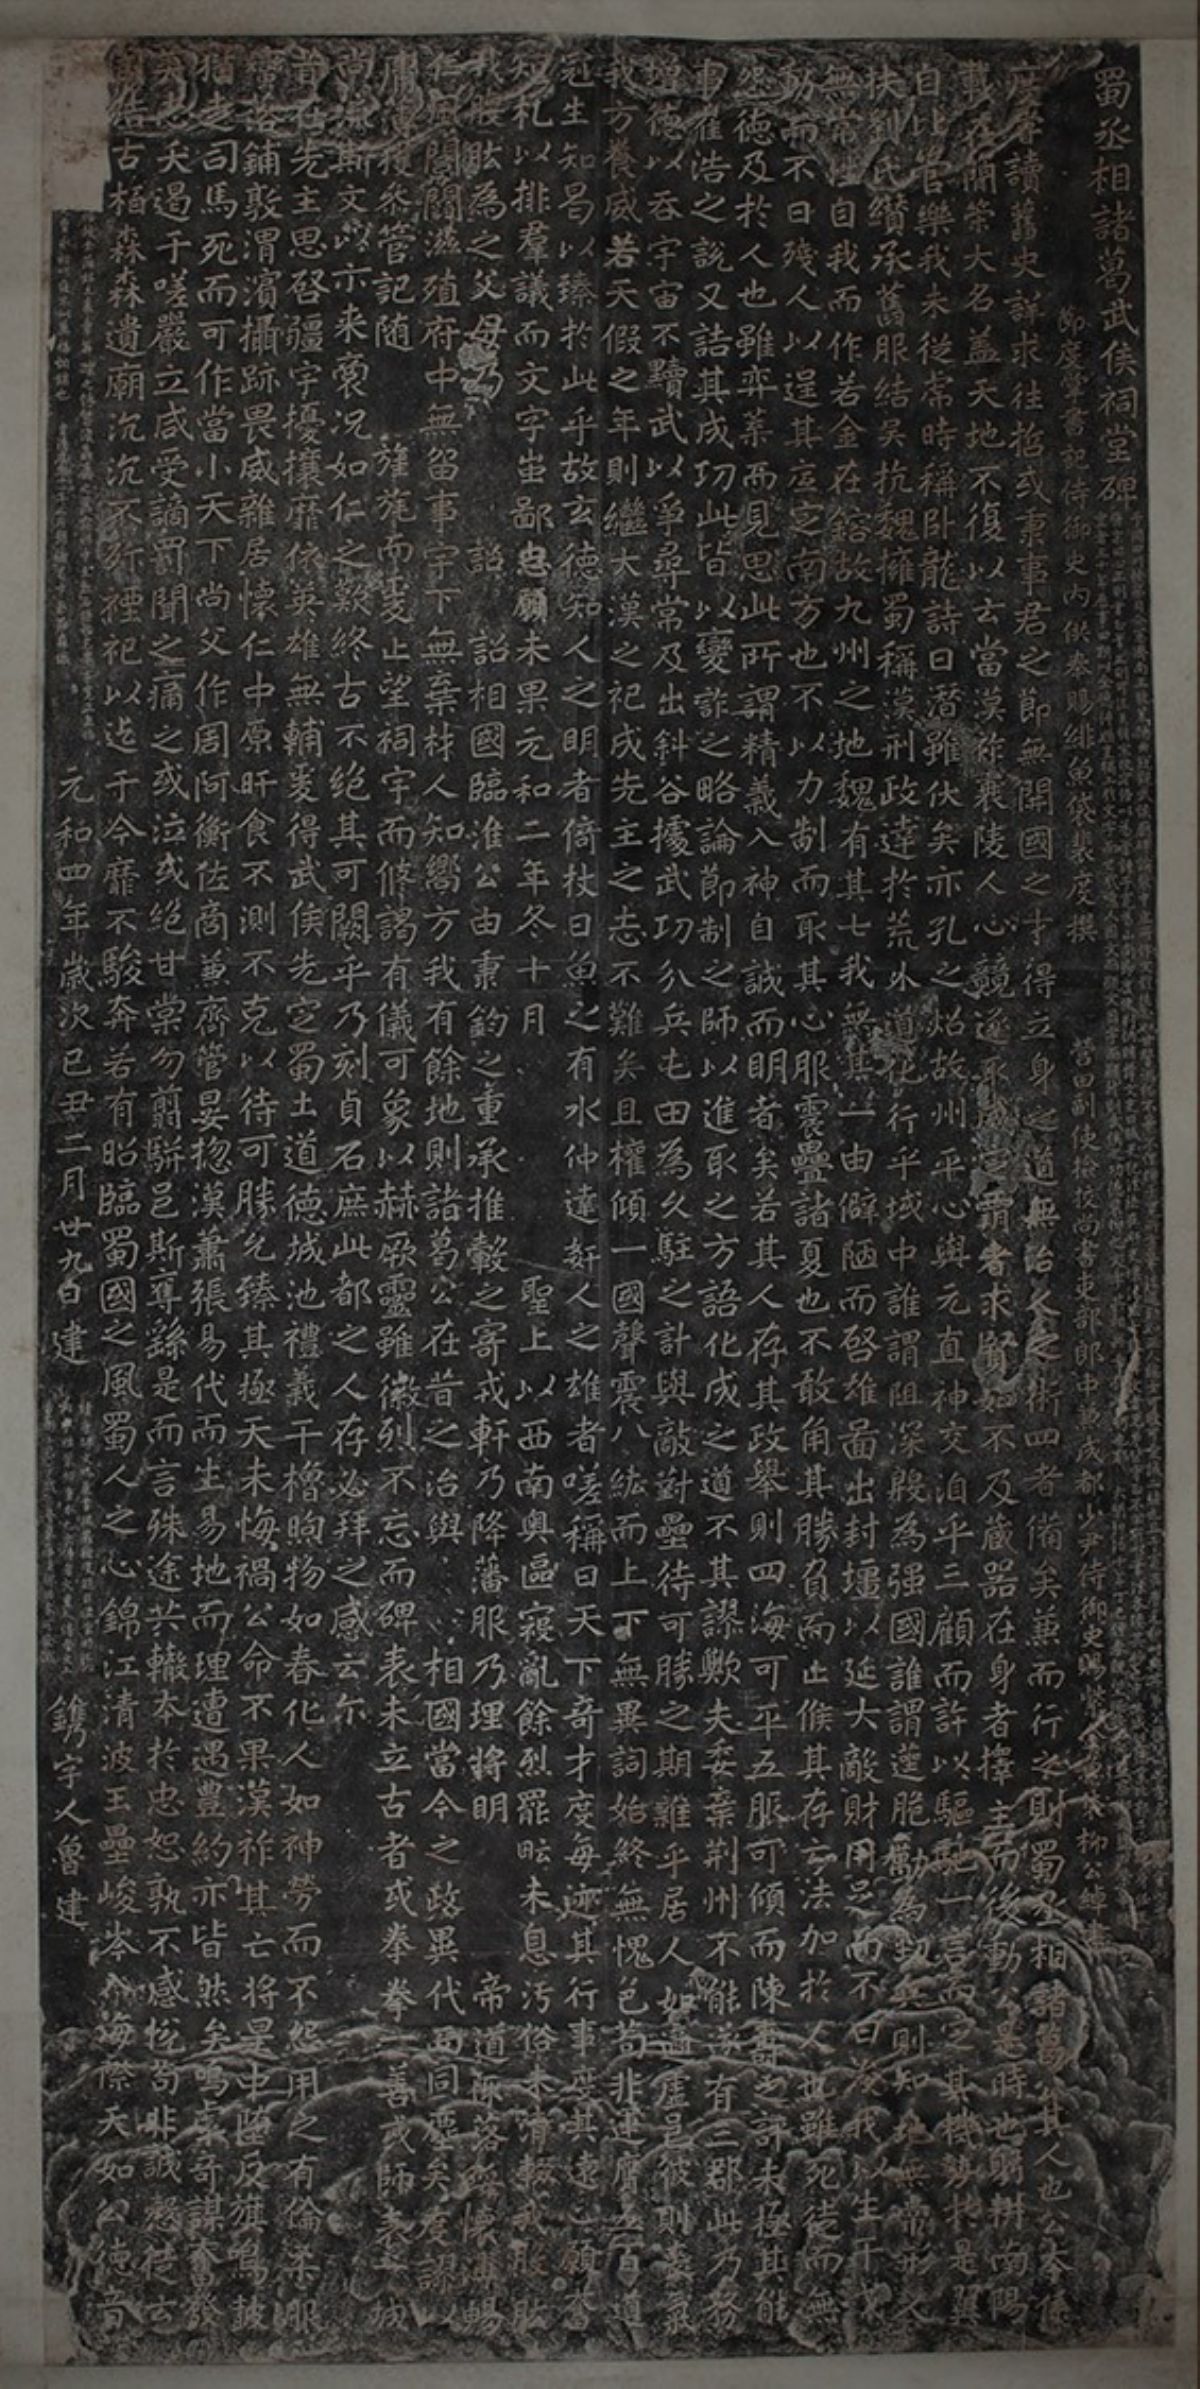 蜀丞相諸葛武侯祠堂碑
節度掌書記侍御史內供奉賜緋魚袋裴度撰 營田副使檢校尚書吏部郎中兼成都少尹侍御史賜紫 柳公綽書
度嘗讀舊史詳求往哲或秉事君之節無開國之才得立身之道無治人之術四者備矣兼而行之則蜀丞相諸葛公其人也公本係
載在簡策大名蓋天地不復以云當漢祚衰陵人心競逐取威定霸者求賢如不及藏器在身者擇主而後動公是時也躬耕南陽
自比管樂我未從虎時稱臥龍詩曰潛雖伏矣亦孔之炤故州平心與元直神交洎乎三顧而許以驅馳一言而定其機勢於是翼
扶劉氏纘承舊服結吳抗魏擁蜀稱漢刑政達於荒外道化行乎域中誰謂阻深殷為强國誰謂遳脆勵為勁兵則知地無常形人
無常性自我而作若金在鎔故九州之地魏有其七我無其一由僻陋而啓雄啚出封壃以延大敵財用足而不曰浚我以生干戈
動而不曰殘人以逞其底定南方也不以力制而取其心服震疊諸夏也不敢角其勝負而止候其存亡法加於人也雖死徒而無
怨德及於人也雖弈葉而見思此所謂精義入神自誠而明者矣若其人存其政舉則四海可平五服可傾而陳壽之評未極其能
事崔浩之說又詰其成功此皆以變詐之略論節制之師以進取之方語化成之道不其謬歟夫委棄荆州不能遂有三郡此乃務
增德以吞宇宙不黷武以爭尋常及出斜谷據武功分兵屯田為久駐之計與敵對壘待可勝之期雜乎居人如適虛邑彼則喪氣
我方養威若天假之年則繼大漢之祀成先主之志不難矣且權傾一國聲震八紘而上下無異詞始終無愧色苟非運膺五百道
冠生知曷以臻於此乎故玄德知人之明者倚杖曰魚之有水仲達奸人之雄者嗟稱曰天下奇才度每迹其行事度其遠心願奮
短札以排羣議而文字蚩鄙志願未果元和二年冬十月 聖上以西南奧區寇亂餘烈罷甿未息污俗未清輟我股肱
為之父母乃詔相國臨淮公由秉鈞之重承推轂之寄戎軒乃降藩服乃理將明 帝道陬落綏懷溥暢
仁風閭閻滋殖府中無留事宇下無棄材人知嚮方我有餘地則諸葛公在昔之治與 相國當今之政異代而同塵矣度謬以
庸薄獲參管記隨 旌旄而爰止望祠宇而修謁有儀可象以赫厥靈雖徽烈不忘而碑表未立古者或拳拳一善或師表一城
尚流斯文以示來裔況如仁之歎終古不絕其可闕乎乃刻貞石庶此都之人存必拜之感云尔
昔在先主思啓疆宇擾攘靡依英雄無輔爰得武侯先定蜀土道德城池禮義干櫓煦物如春化人如神勞而不怨用之有倫柔服
蠻落鋪敦渭濱攝跡畏威雜居懷仁中原旰食不測不克以待可勝允臻其極天未悔禍公命不果漢祚其亡將星中隕反旗鳴鼓
猶走司馬死而可作當小天下尚父作周阿衡佐商兼齊管晏揔漢蕭張易代而生易地而理遭遇豐約亦皆然矣嗚虖奇謀奮發
美志夭遏于嗟嚴立咸受謫罰聞之痛之或泣或絕甘棠勿翦駢邑斯奪繇是而言殊途共轍本於忠恕孰不感悅苟非誠慤徒云
固結古栢森森遺廟沉沉不殄禋祀以迄于今靡不駿奔若有昭臨蜀國之風蜀人之心錦江清波玉壘峻岑入海際天如公德音
元和四年歲次己丑二月廿九日建 鐫字人魯建